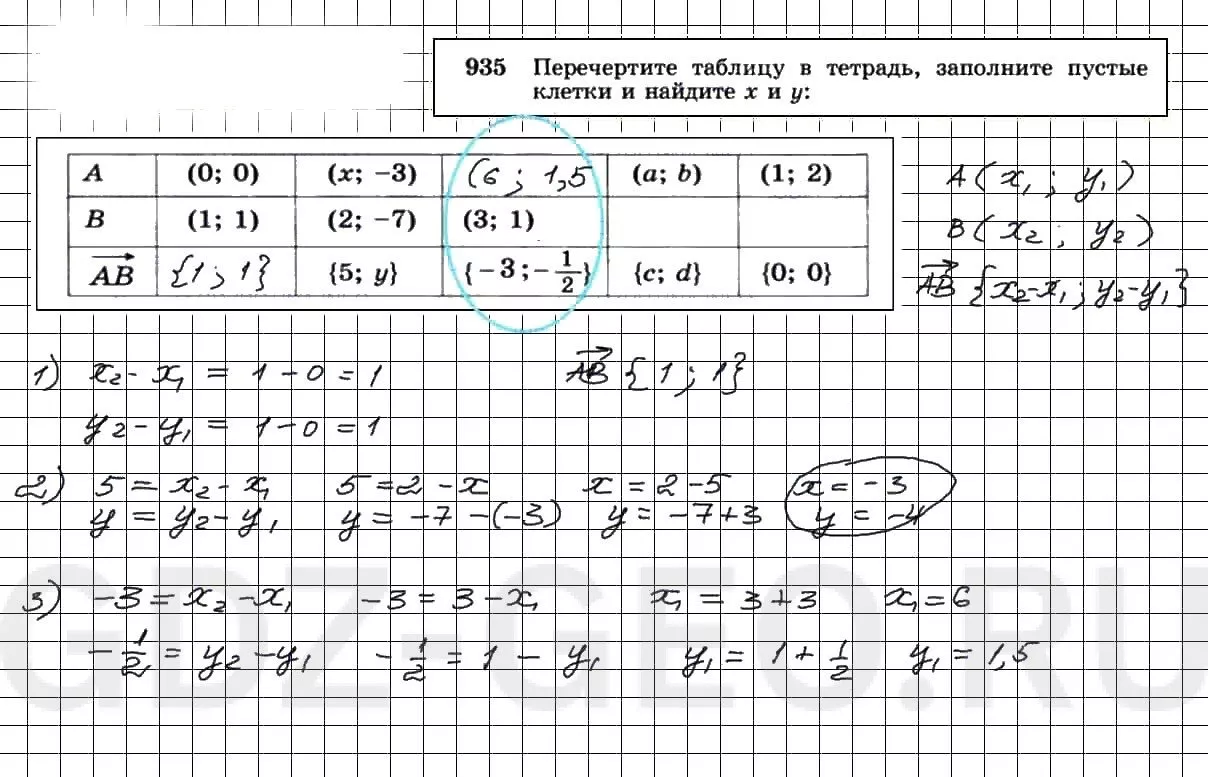 935 Перечертите таблицу в тетрадь, заполните пустые
клетки и найдите x и y:
A (0; 0) (x; −3) (6 ; 1,5 (a; b) (1; 2)
B (1; 1) (2; −7) (3; 1)
AB {1 ; 1} {5; y} {−3 ; −1/2} {c; d} {0; 0}
A ( x₁ ; y₁ )
B ( x₂ ; y₂ )
AB { x₂ - x₁ ; y₂ - y₁ }
1) x₂ - x₁ = 1 - 0 = 1 AB { 1 ; 1 }
y₂ - y₁ = 1 - 0 = 1
2) 5 = x₂ - x₁ 5 = 2 - x x = 2 - 5 x = - 3
y = y₂ - y₁ y = -7 - (-3) y = -7 + 3 y = -4
3) -3 = x₂ - x₁ -3 = 3 - x₁ x₁ = 3 + 3 x₁ = 6
-1/2 = y₂ - y₁ -1/2 = 1 - y₁ y₁ = 1 + 1/2 y₁ = 1,5
GDZ-GEO.RU